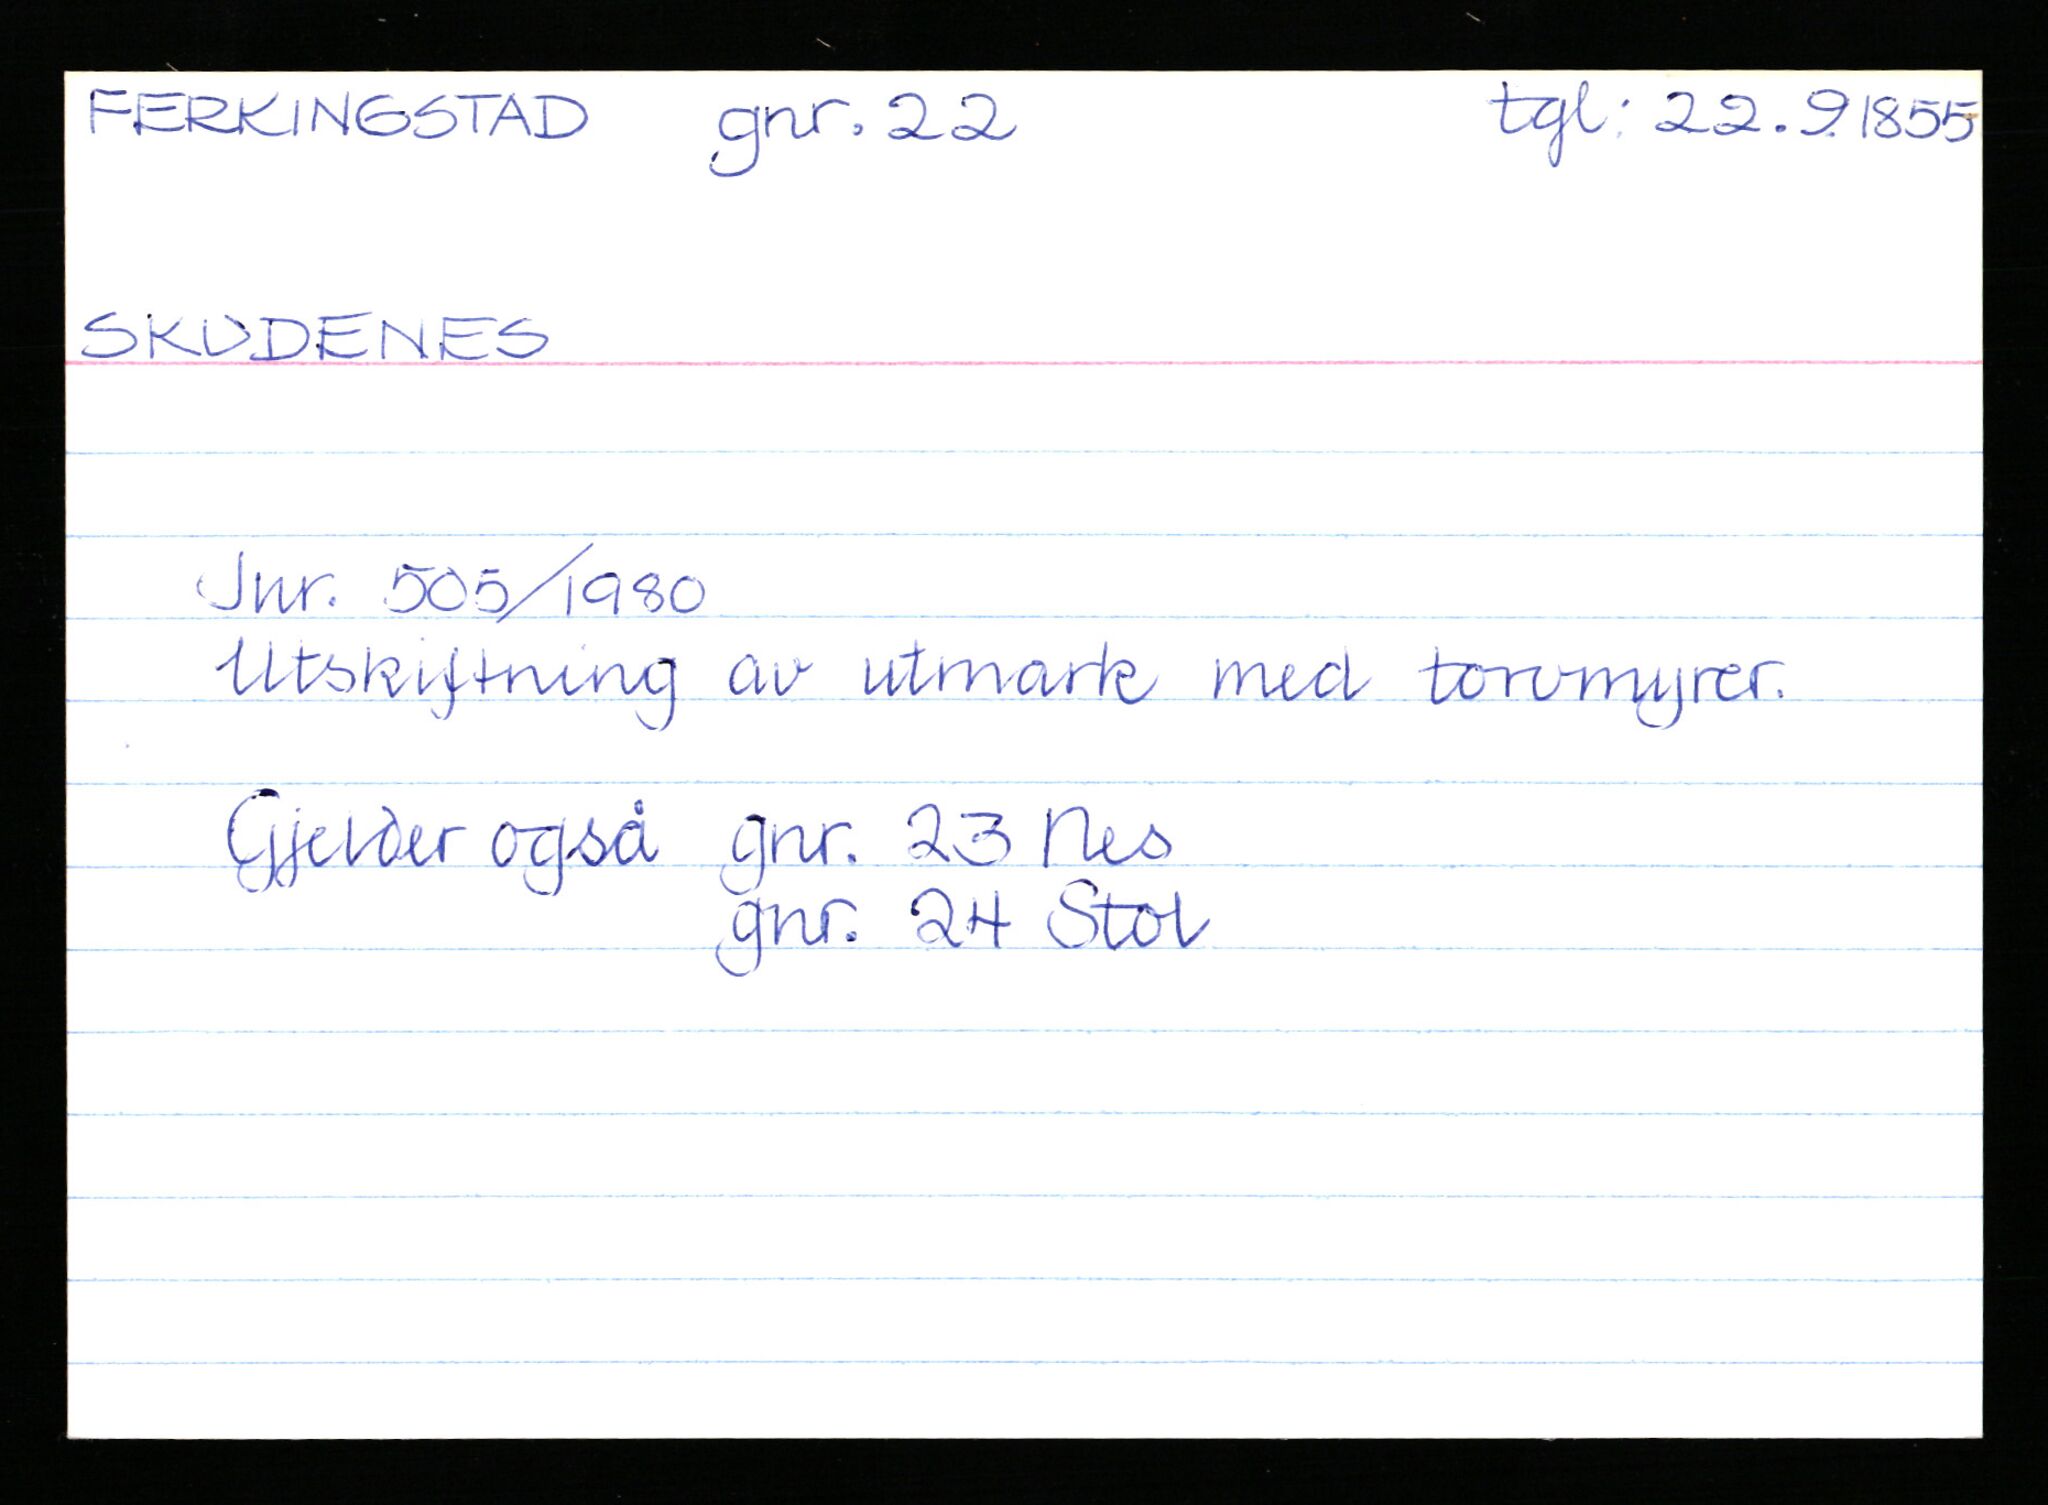 FERKINGSTAD gnr. 22 tgl: 22.9.1855
SKUDENES
Jnr. 505/1980
Utskiftning av utmark med torvmyrer.
Gjelder også gnr. 23 Nes
gnr. 24 Stol